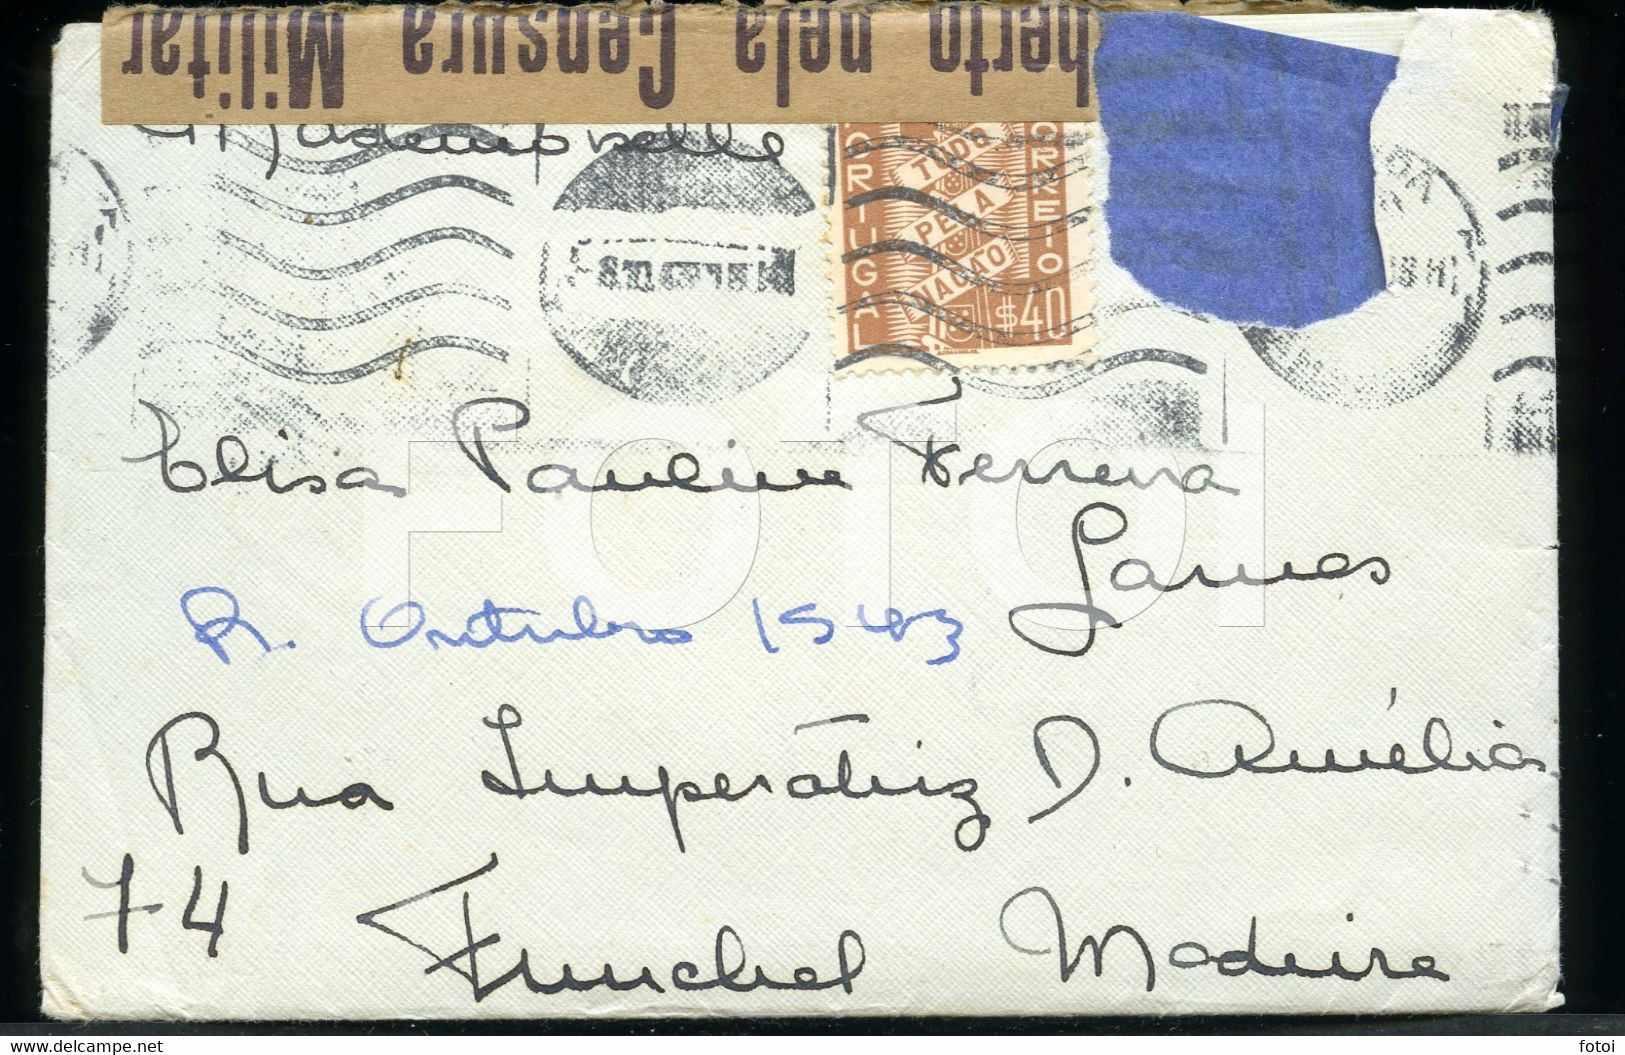 berto pela Censura
Militar
Mademoiselle
TUDO
PELA
NAÇÃO
CORREIO
$40
Elisa Pauline Ferreira
Lames
R. Outubro 1943
Rua Imperatriz D. Amélia
74
Funchal Madeira
FOTOI
www.delcampe.net
fotoi